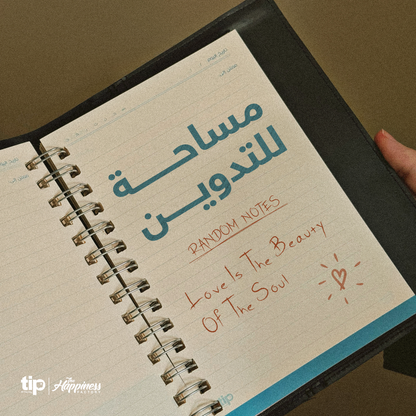 مساحة
للتدوين
RANDOM NOTES
Love Is The Beauty
Of The Soul
tip
tip
The Happiness
FACTORY